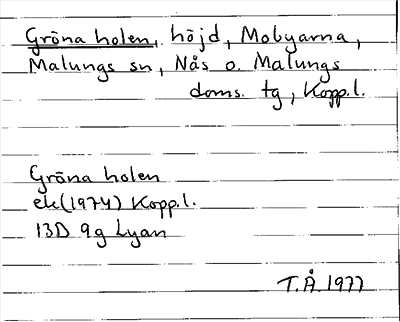 Gröna holen, höjd, Mobyarna,
Malungs sn, Nås o. Malungs
doms. tg, Kopp.l.
Gröna holen
ek (1974) Kopp.l.
13D 9g Lyan
T.Å. 1977